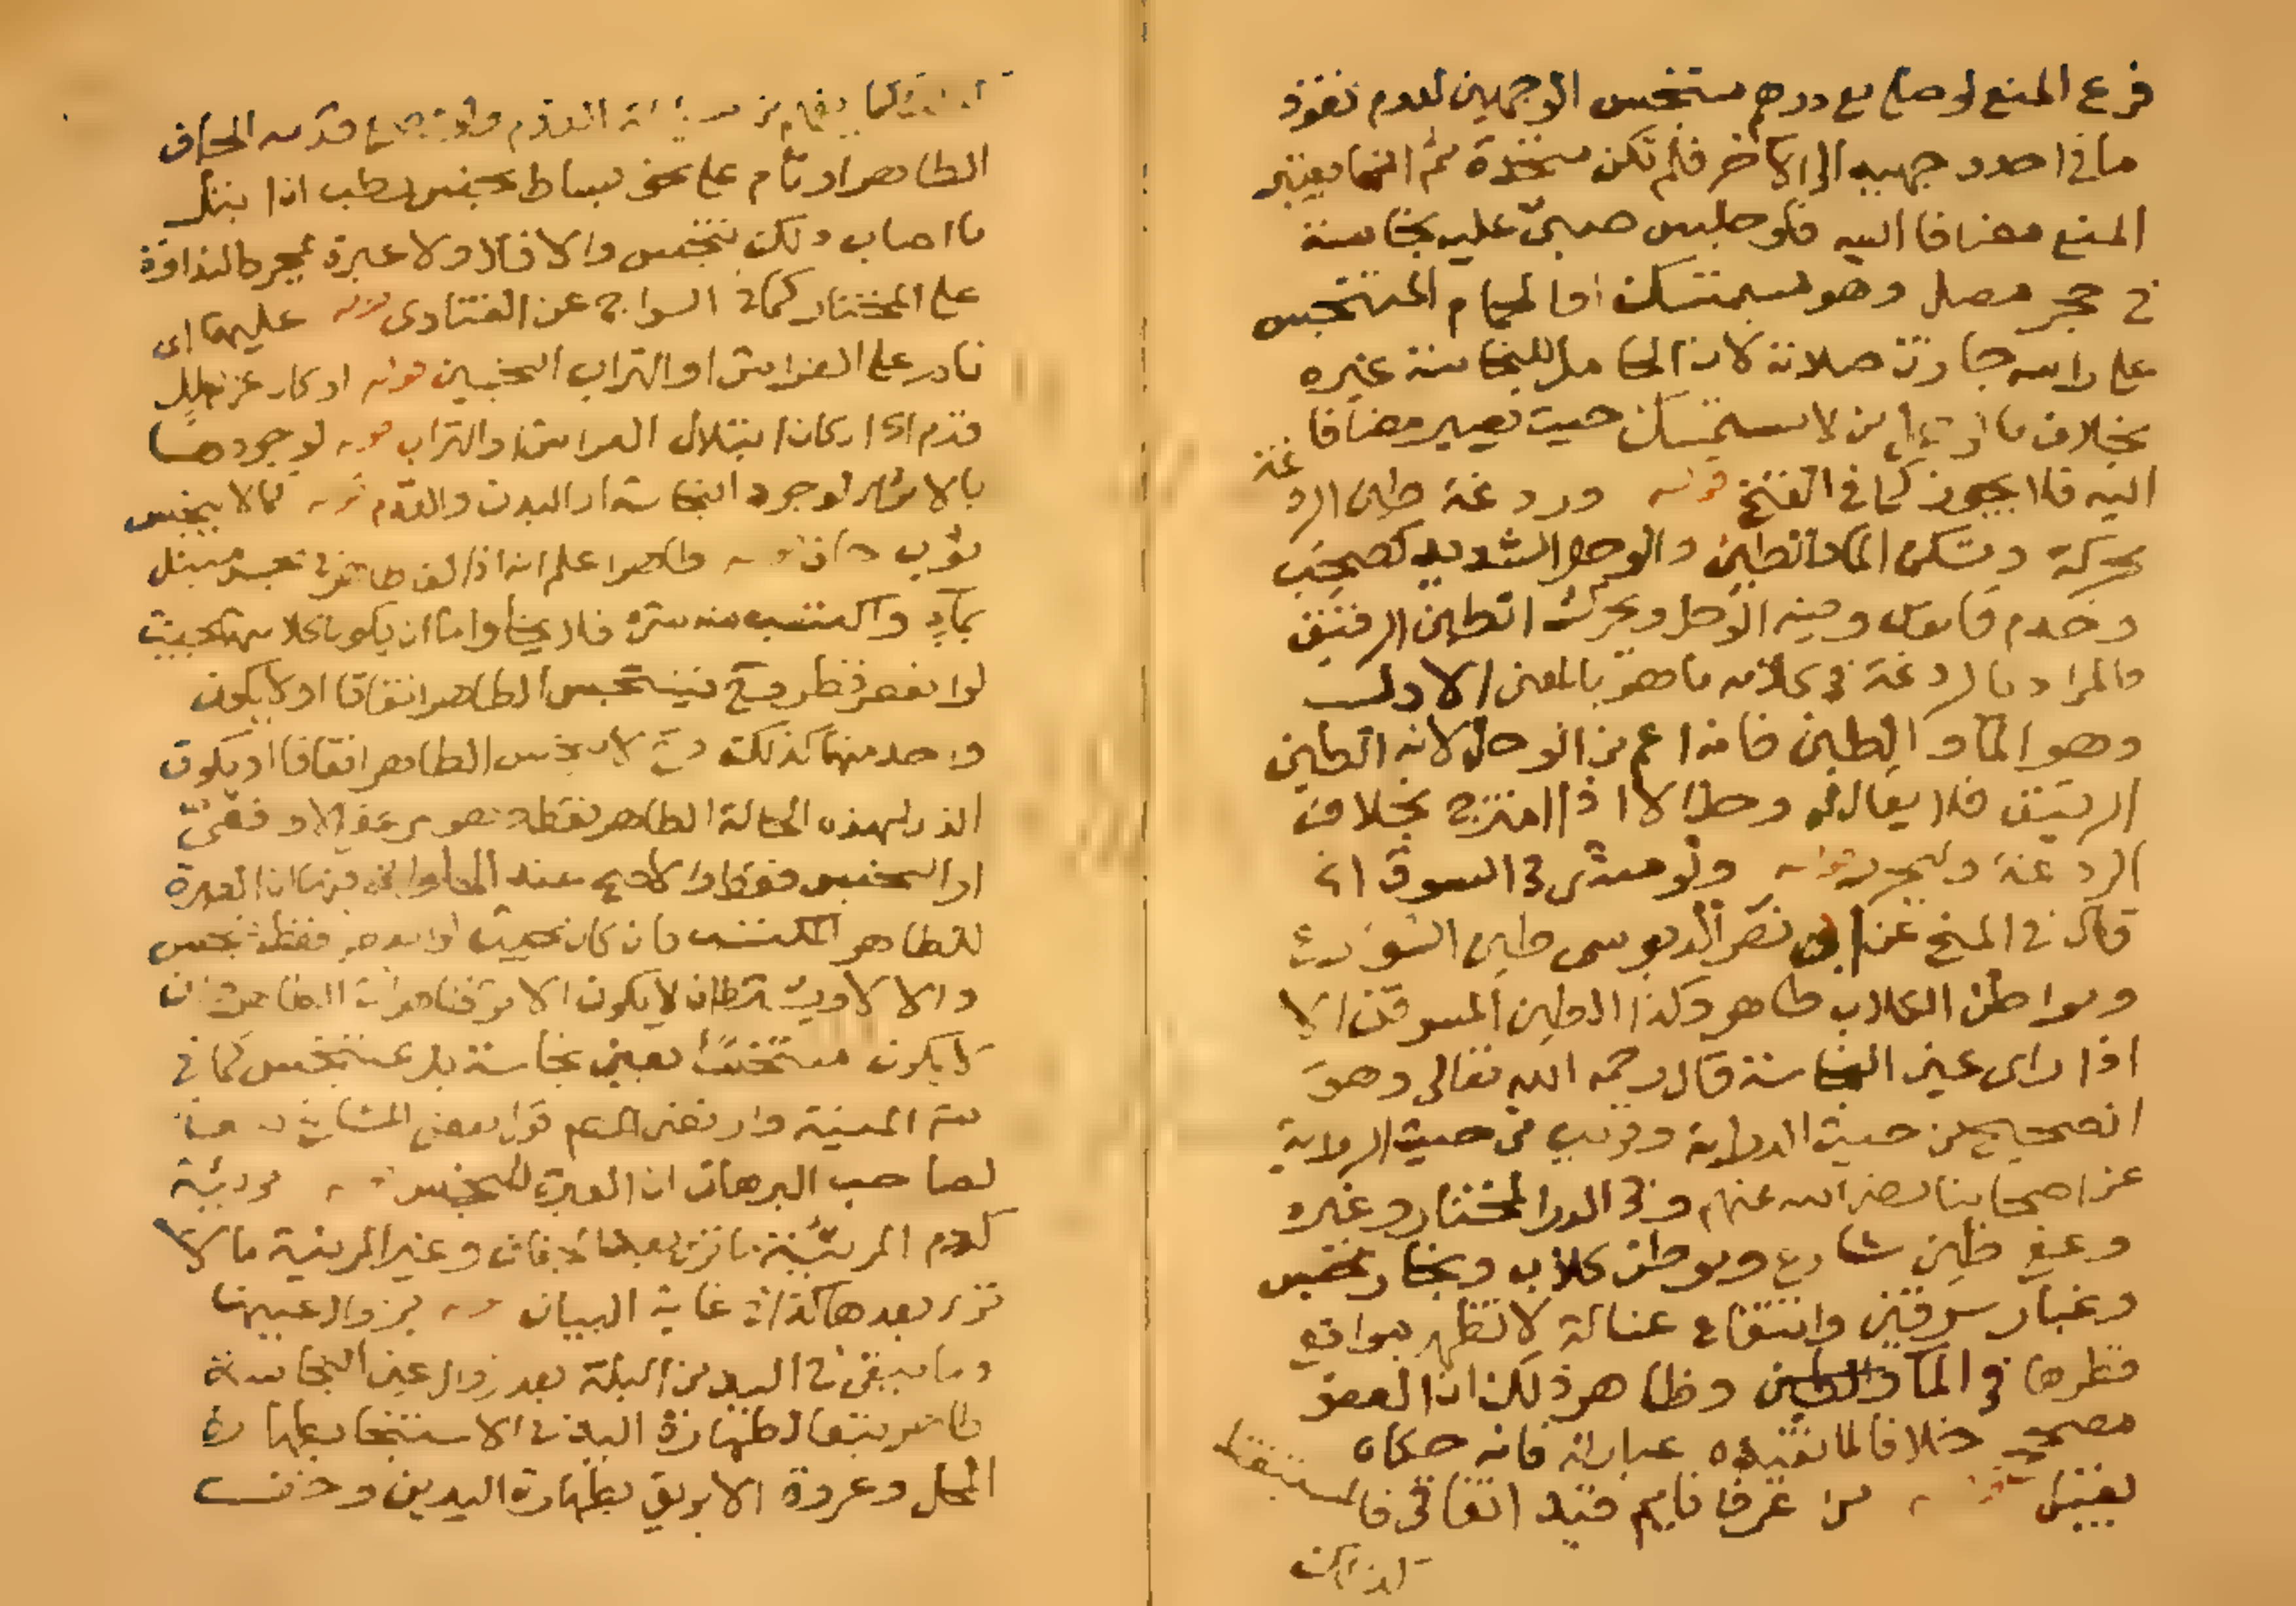 فرع المنع لو صلى مع درهم متنجس الوجهين لعدم نفوذ
ما في احد وجهيه الى الآخر فلم تكن متحدة ثم انما يعتبر
المنع مضافا اليه فلو جلس صبي عليه نجاسة
في حجر مصل وهو يستمسك او الحمام المتنجس
على راسه جازت صلاته لان الحامل للنجاسة غيره
بخلاف ما لو من لا يستمسك حيث يصير مضافا
اليه فلا يجوز كما في الفتح قوله وردغة طين الردغة
محركة وتسكن الماء والطين والوحل الشديد كصحب
وخدم قاموس وفيه الوحل ويحرك الطين الرقيق
فالمراد بالردغة في كلامه ما هو بالمعنى الاول
وهو الماء والطين فانه اعم من الوحل لانه الطين
الرقيق فلا يقال وحلا الا اذا امتزج بخلاف
الردغة قوله ولو مشى في السوق الخ
قال في المنح عن ابي نصر الدبوسي طين الشوارع
ومواطئ الكلاب طاهر وكذا الطين المسرقن الا
اذا راى عين النجاسة قال رحمه الله تعالى وهو
الصحيح من حيث الدراية وقريب من حيث الرواية
عن اصحابنا رضي الله عنهم وفي الدر المختار وغيره
وعفي طين شارع ومواطئ كلاب وبخار نجس
وغبار سرقين وانتضاح غسالة لا تظهر مواقع
قطرها في الماء والطين وظاهر ذلك ان العفو
مصحح خلافا لما تفيده عبارته فانه حكاه
بقيل قوله من عرق نايم قيد اتفاقي فالمستيقظ
كما يفهم من القدم
الطاهر او نام على نحو بساط نجس رطب اذا ابتل
ما اصاب ذلك تنجس والا فلا ولا عبرة بمجرد النداوة
على المختار كما في السراج عن الفتاوى قوله عليهما اى
نام على الفراش او التراب النجسين قوله او كان
قدم اى او كان ابتلال الفراش او التراب قوله لوجودها
بالاثر لوجود النجاسة او البدن والقدم قوله كما لا ينجس
ثوب جاف قوله طاهر اعلم انه اذا لف طاهر في نجس مبتل
بماء واكتسب منه شيئا فلا يخلو اما ان يكون كلا منهما بحيث
لو انعصر قطر وح يتنجس الطاهر اتفاقا او لا يكون
واحد منهما كذلك وح لا ينجس الطاهر اتفاقا او يكون
الذي بهذه الحالة الطاهر فقط
او النجس فقط والاصح عند الحلواني فيهما ان العبرة
للطاهر المكتسب فان كان بحيث لو انعصر قطر تنجس
والا لا ويشترط ان لا يكون الاثر ظاهرا
لا يكون متنجسا بعين نجاسة بل بمتنجس كما في
شرح المنية وارتضى المص قول بعض المشايخ
لصاحب البرهان ان العبرة للنجس قوله مرئية
كدم المرئية ما ترى بعد الجفاف وغير المرئية ما لا
ترى بعدها كذا في غاية البيان قوله بزوال عينها
وما يبقى في اليد من البلة بعد زوال عين النجاسة
طاهر تبعا لطهارة اليد في الاستنجاء بطهارة
المحل وعروة الابريق بطهارة اليدين وخف